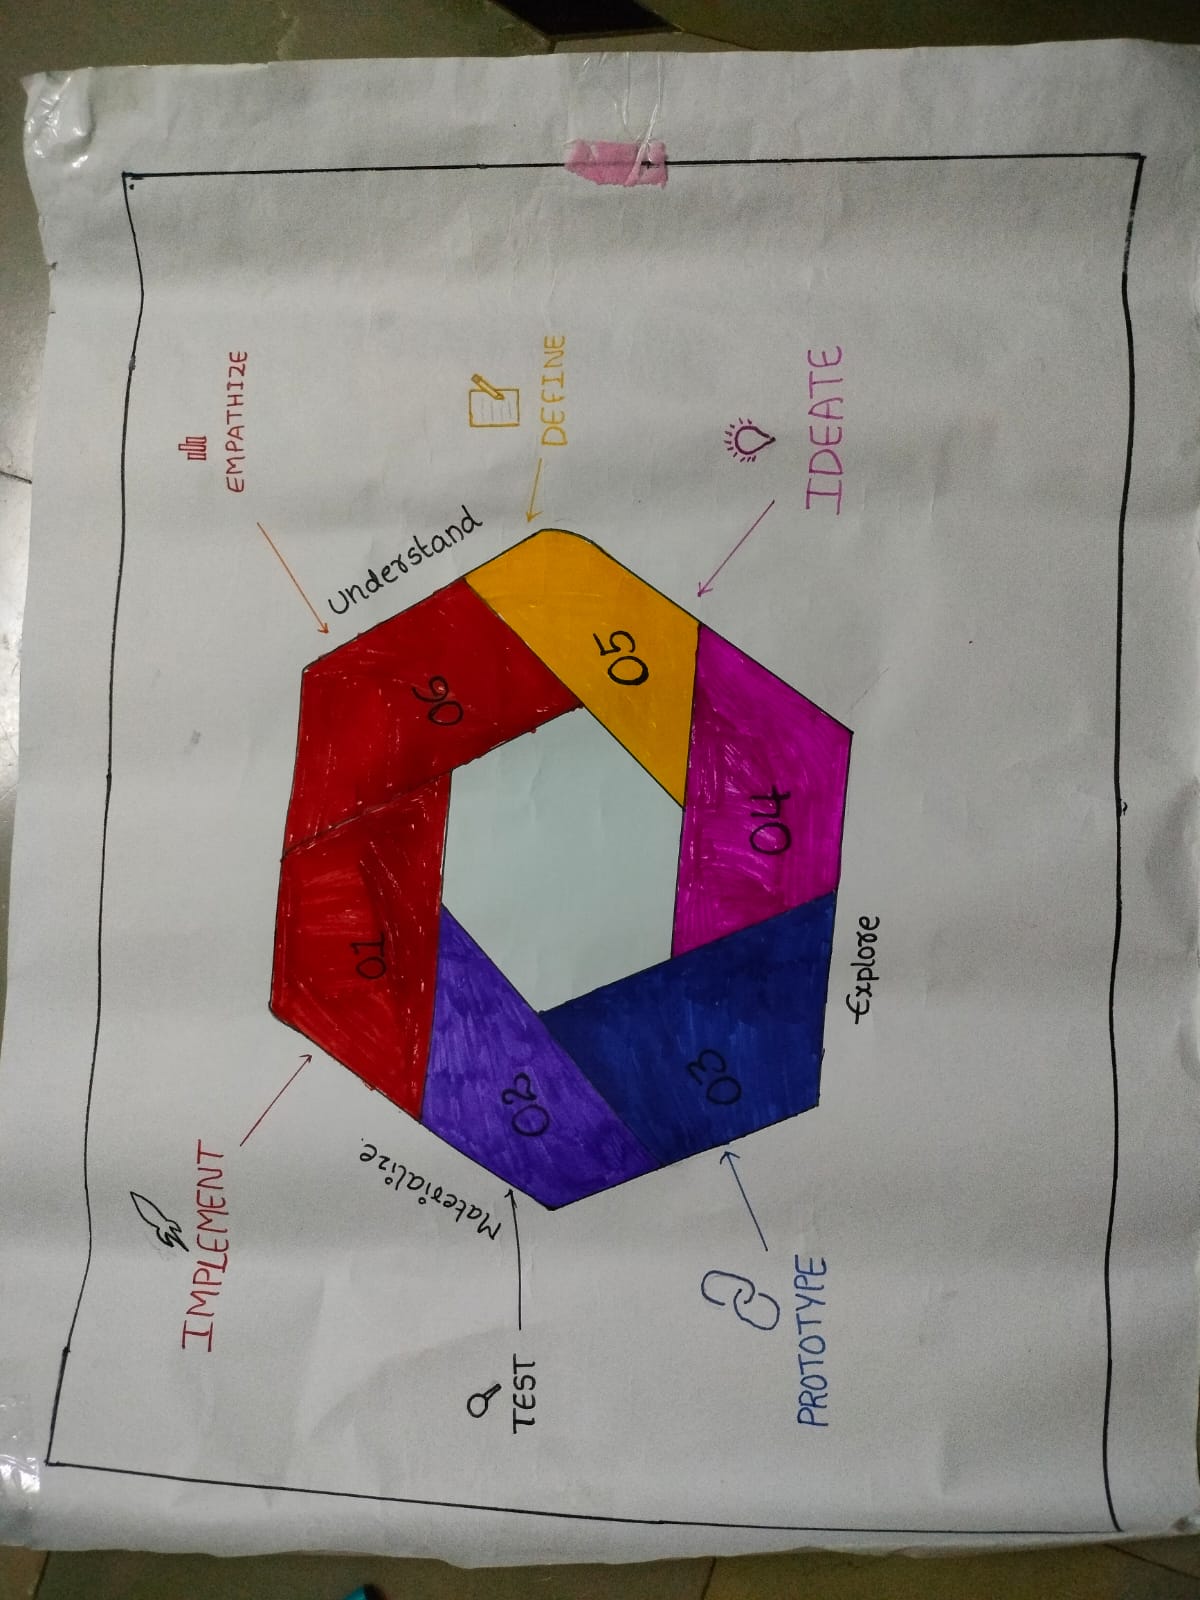 IMPLEMENT
EMPATHIZE
Materialize.
Understand
01
06
02
TEST
05
DEFINE
03
04
PROTOTYPE
IDEATE
Explore